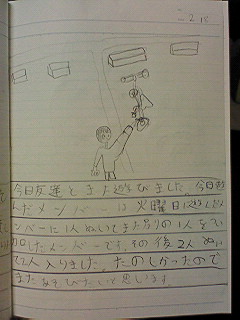 今日友達とまた遊びました。今日遊
んだメンバーは火曜日に遊んだメ
ンバーに1人ぬいてまた別の1人をつい
加したメンバーです。その後2人ぬい
て2人入りました。たのしかったので
またあそびたいと思います。